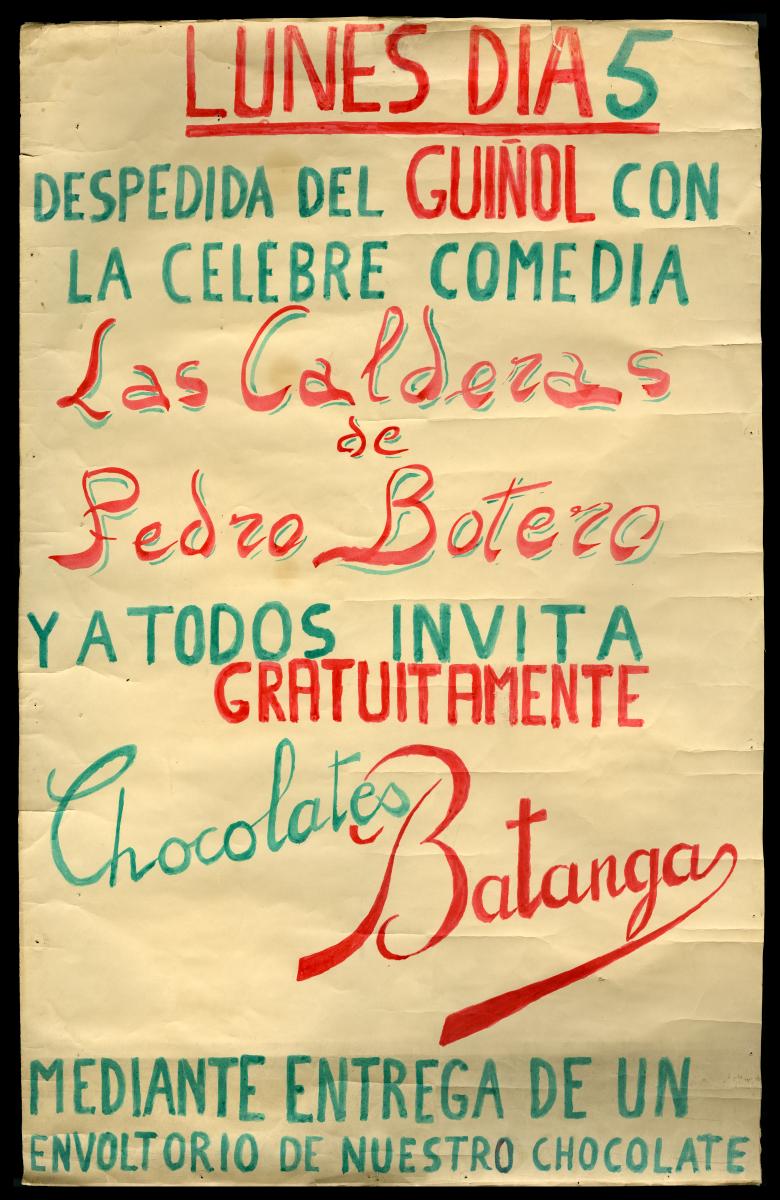 LUNES DIA 5
DESPEDIDA DEL GUIÑOL CON
LA CELEBRE COMEDIA
Las Calderas
de
Pedro Botero
Y A TODOS INVITA
GRATUITAMENTE
Chocolates
Batanga
MEDIANTE ENTREGA DE UN
ENVOLTORIO DE NUESTRO CHOCOLATE